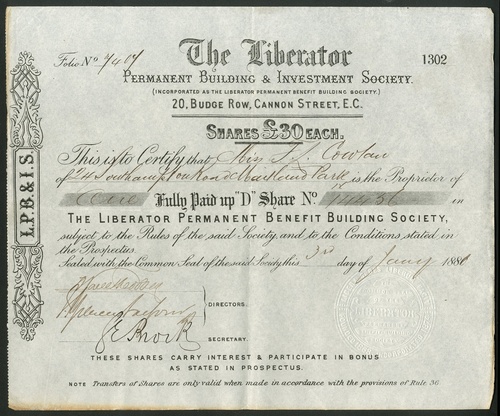 Folio No. 7407
The Liberator
1302
PERMANENT BUILDING & INVESTMENT SOCIETY.
(INCORPORATED AS THE LIBERATOR PERMANENT BENEFIT BUILDING SOCIETY.)
20, BUDGE ROW, CANNON STREET, E.C.
SHARES £30 EACH.
This is to Certify that Miss Cowlan
of Southampton Road Park is the Proprietor of
One Fully Paid up "D" Share No. 14436 in
THE LIBERATOR PERMANENT BENEFIT BUILDING SOCIETY,
subject to the Rules of the said Society and to the Conditions stated in
the Prospectus.
Sealed with the Common Seal of the said Society this 3rd day of Jany 188
DIRECTORS.
SECRETARY.
THESE SHARES CARRY INTEREST & PARTICIPATE IN BONUS
AS STATED IN PROSPECTUS.
NOTE Transfers of Shares are only valid when made in accordance with the provisions of Rule 36
L.P.B. & I.S.